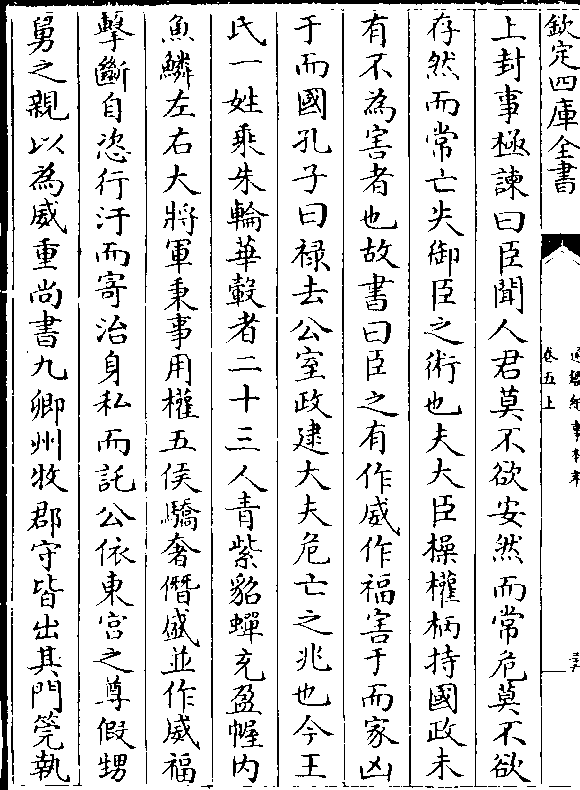 欽定四庫全書
卷五上
上封事極諫曰臣聞人君莫不欲安然而常危莫不欲
存然而常亡失御臣之術也夫大臣操權柄持國政未
有不為害者也故書曰臣之有作威作福害于而家凶
于而國孔子曰禄去公室政逮大夫危亡之兆也今王
氏一姓乘朱輪華轂者二十三人青紫貂蟬充盈幄内
魚鱗左右大將軍秉事用權五侯驕奢僭盛並作威福
擊斷自恣行汙而寄治身私而託公依東宫之尊假甥
舅之親以為威重尚書九卿州牧郡守皆出其門筦執